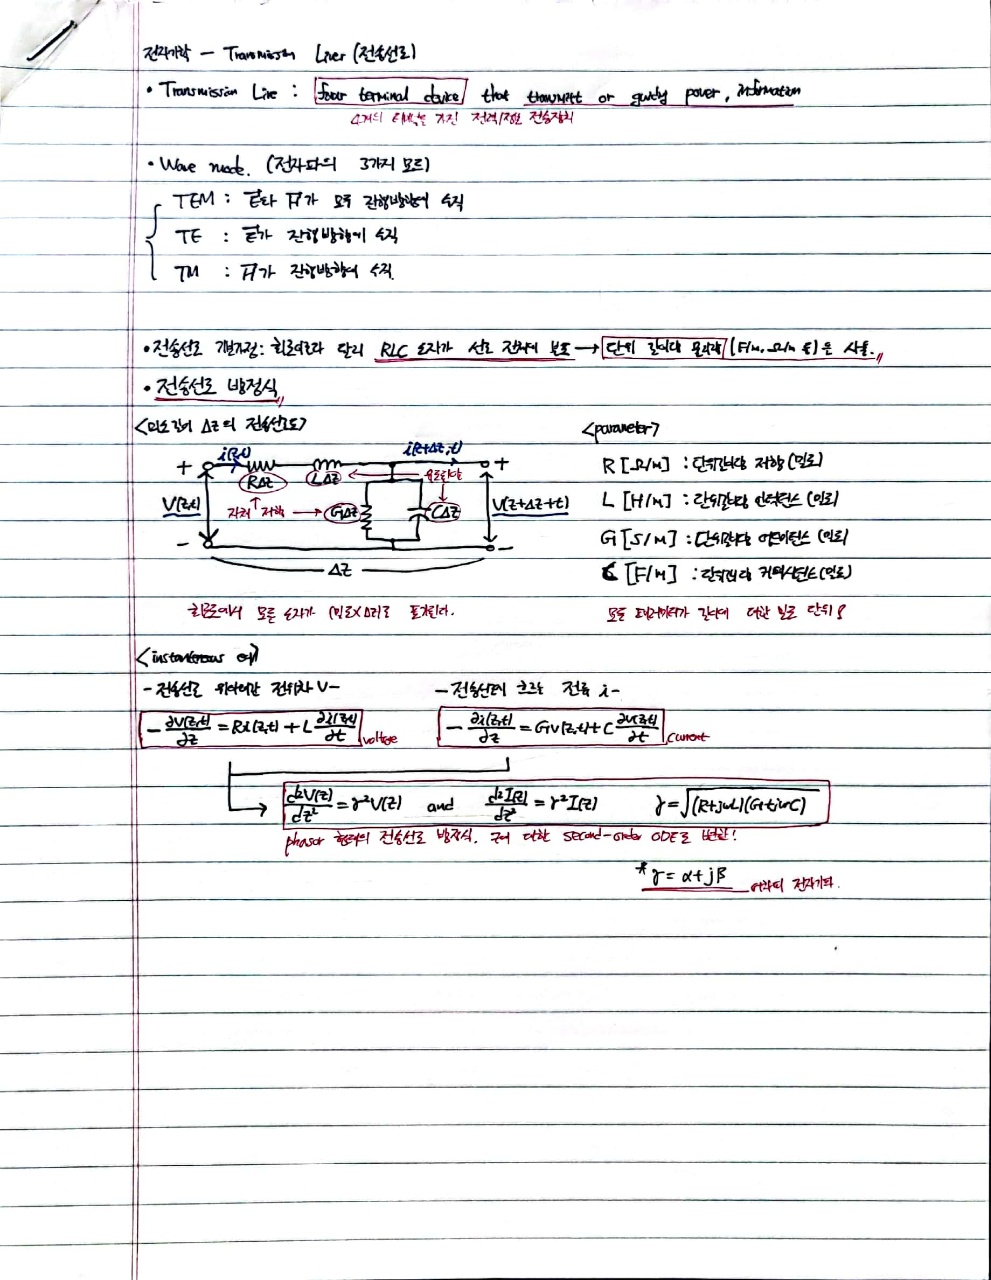 전자기학 - Transmission Liner (전송선로)
• Transmission Line : four terminal device that transmitt or guidng power, information
4개의 터미널을 가진 전력/정보 전송장치
• Wave mode. (전자파의 3가지 모드)
TEM : E와 H가 모두 진행방향에 수직
TE : E가 진행방향에 수직
TM : H가 진행방향에 수직
• 전송선로 기본가정: 회로이론과 달리 RLC 소자가 선로 전체에 분포 → 단위 길이당 물리량 (F/m, Ω/m 등)을 사용.
• 전송선로 방정식
<미소길이 Δz의 전송선로> <parameter>
i(z,t) i(z+Δz,t)
+ RΔz LΔz 유도리액 +
V(z,t) 저항 → GΔz CΔz V(z+Δz+t)
- -
Δz
R [Ω/m] : 단위길이당 저항 (밀도)
L [H/m] : 단위길이당 인덕턴스 (밀도)
G [S/m] : 단위길이당 어드미턴스 (밀도)
C [F/m] : 단위길이당 커패시턴스 (밀도)
회로에서 모든 소자가 (밀도×Δz)로 표기된다. 모든 파라미터가 길이에 대한 밀도 단위!
<instantaneous 예>
- 전송선로 위아래간 전위차 V - - 전송선로에 흐르는 전류 i -
-∂v(z,t)/∂z = Ri(z,t) + L ∂i(z,t)/∂t voltage -∂i(z,t)/∂z = Gv(z,t) + C ∂v(z,t)/∂t current
d²V(z)/dz² = γ²V(z) and d²I(z)/dz² = γ²I(z) γ = √(R+jωL)(G+jωC)
phasor 형태의 전송선로 방정식. z에 대한 second-order ODE로 변환!
* γ = α + jβ